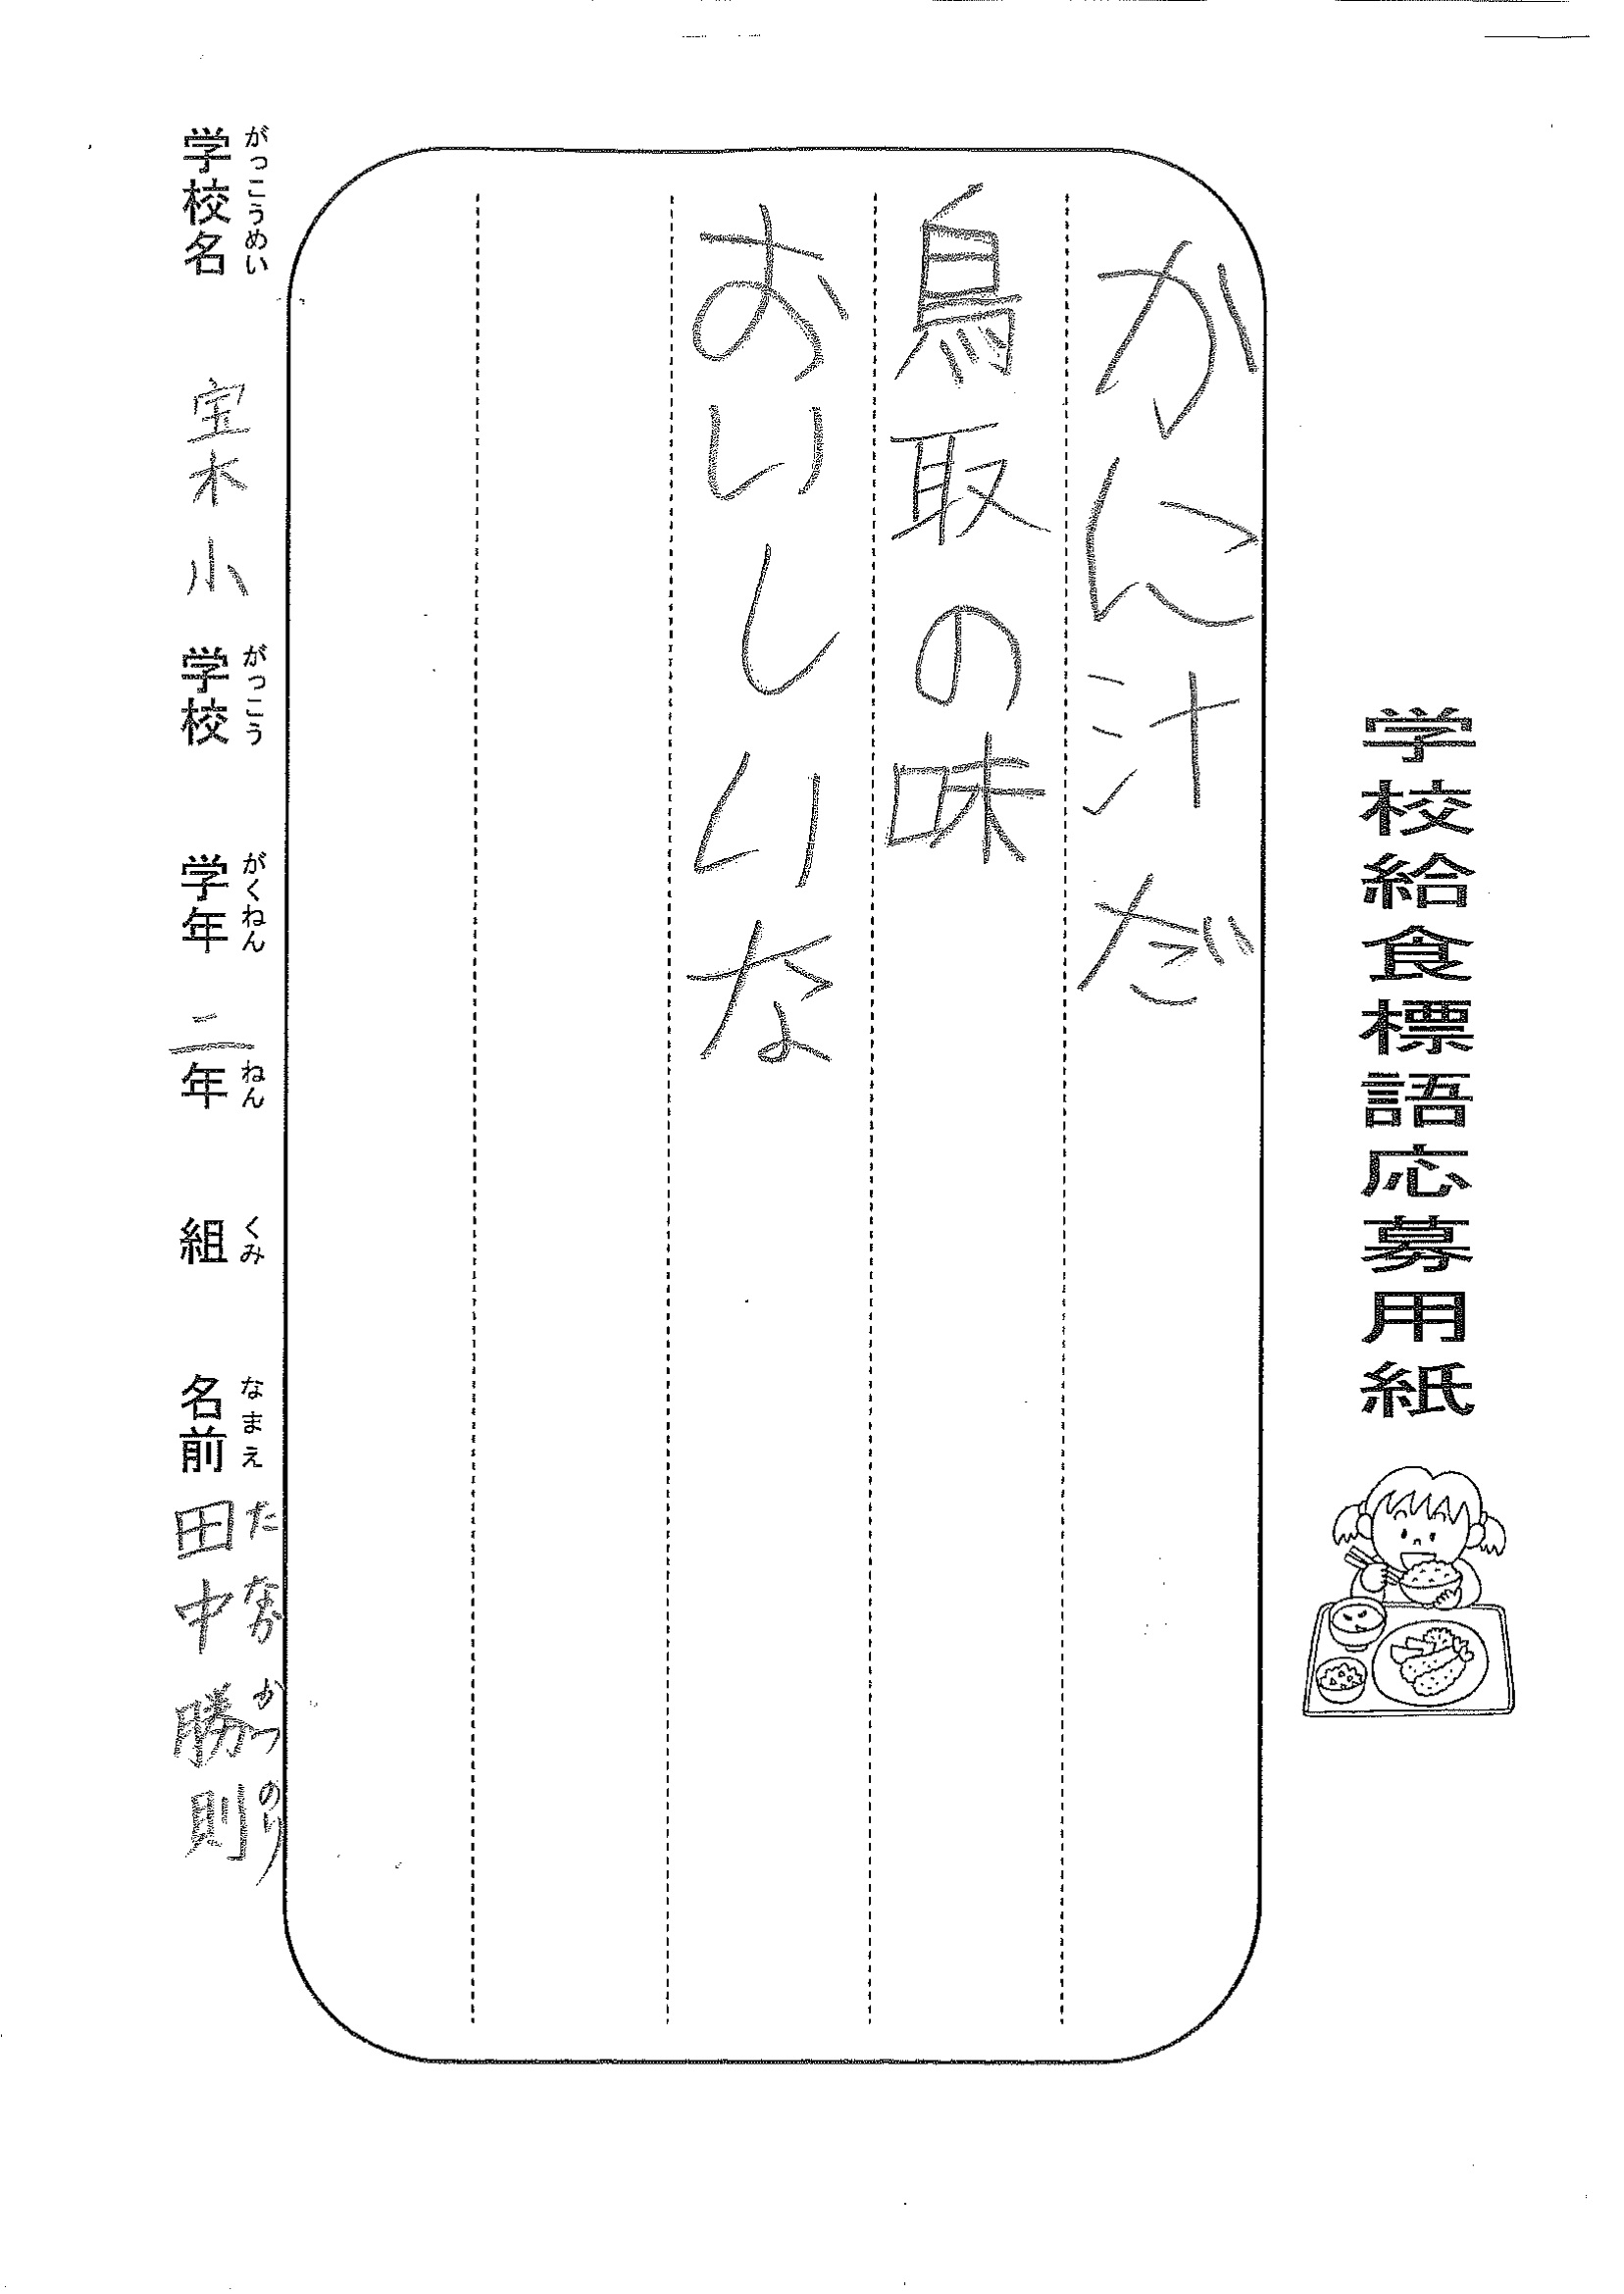 学校給食標語応募用紙
かに汁だ
鳥取の味
おいしいな
がっこうめい がっこう がくねん ねん くみ なまえ たなか かつのり
学校名 宝木小 学校 学年 二年 組 名前 田中 勝則